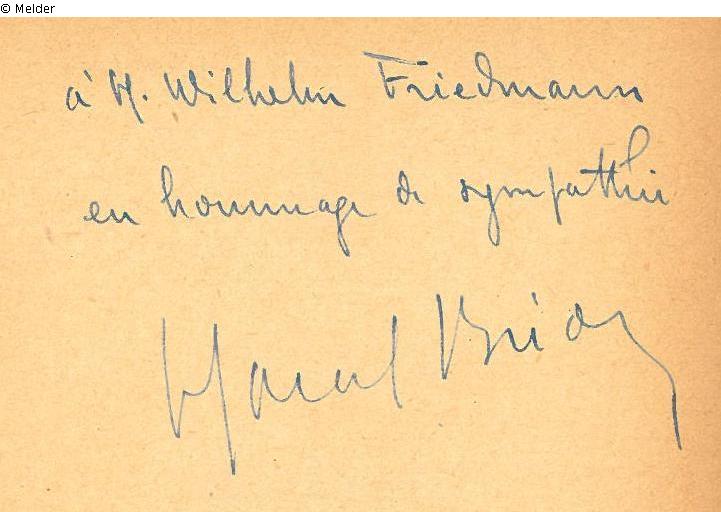 © Melder
à M. Wilhelm Friedmann
en hommage de sympathie
Marcel Brion